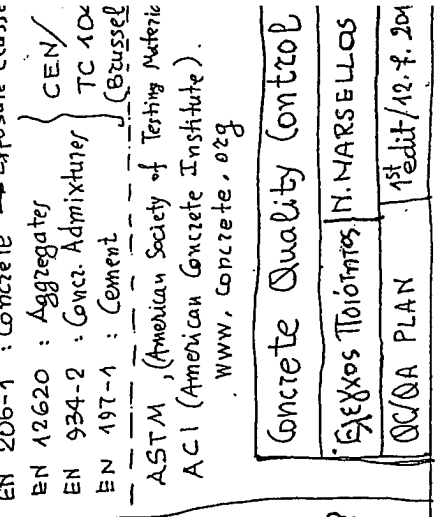 EN 206-1 : Concrete → Exposure Classe
EN 12620 : Aggregates
EN 934-2 : Concr. Admixtures
EN 197-1 : Cement
CEN/
TC 104
(Brussel
ASTM , (American Society of Testing Materia
ACI (American Concrete Institute).
www.concrete.org
Concrete Quality Control
Έλεγχος Ποιότητος N. MARSELLOS
QC/QA PLAN 1st edit/12.7.201